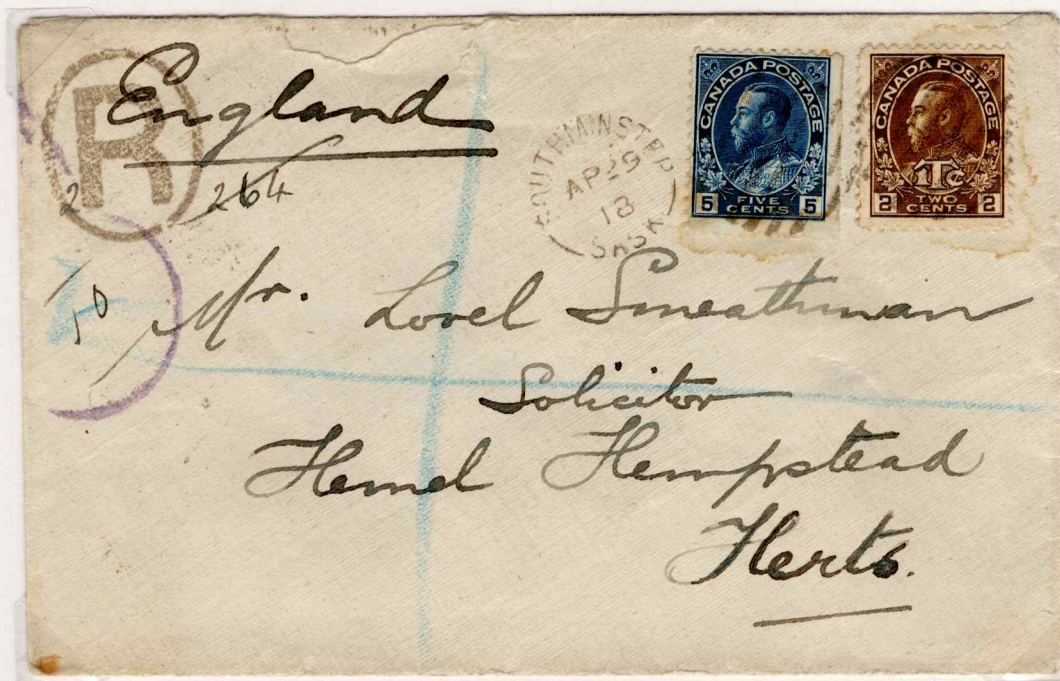 England
R
264
2
10
SOUTHMINSTER
AP 29
18
SASK
CANADA POSTAGE
5 FIVE CENTS 5
CANADA POSTAGE
1Tc
2 TWO CENTS 2
Mr. Lovel Smeathman
Solicitor
Hemel Hempstead
Herts.